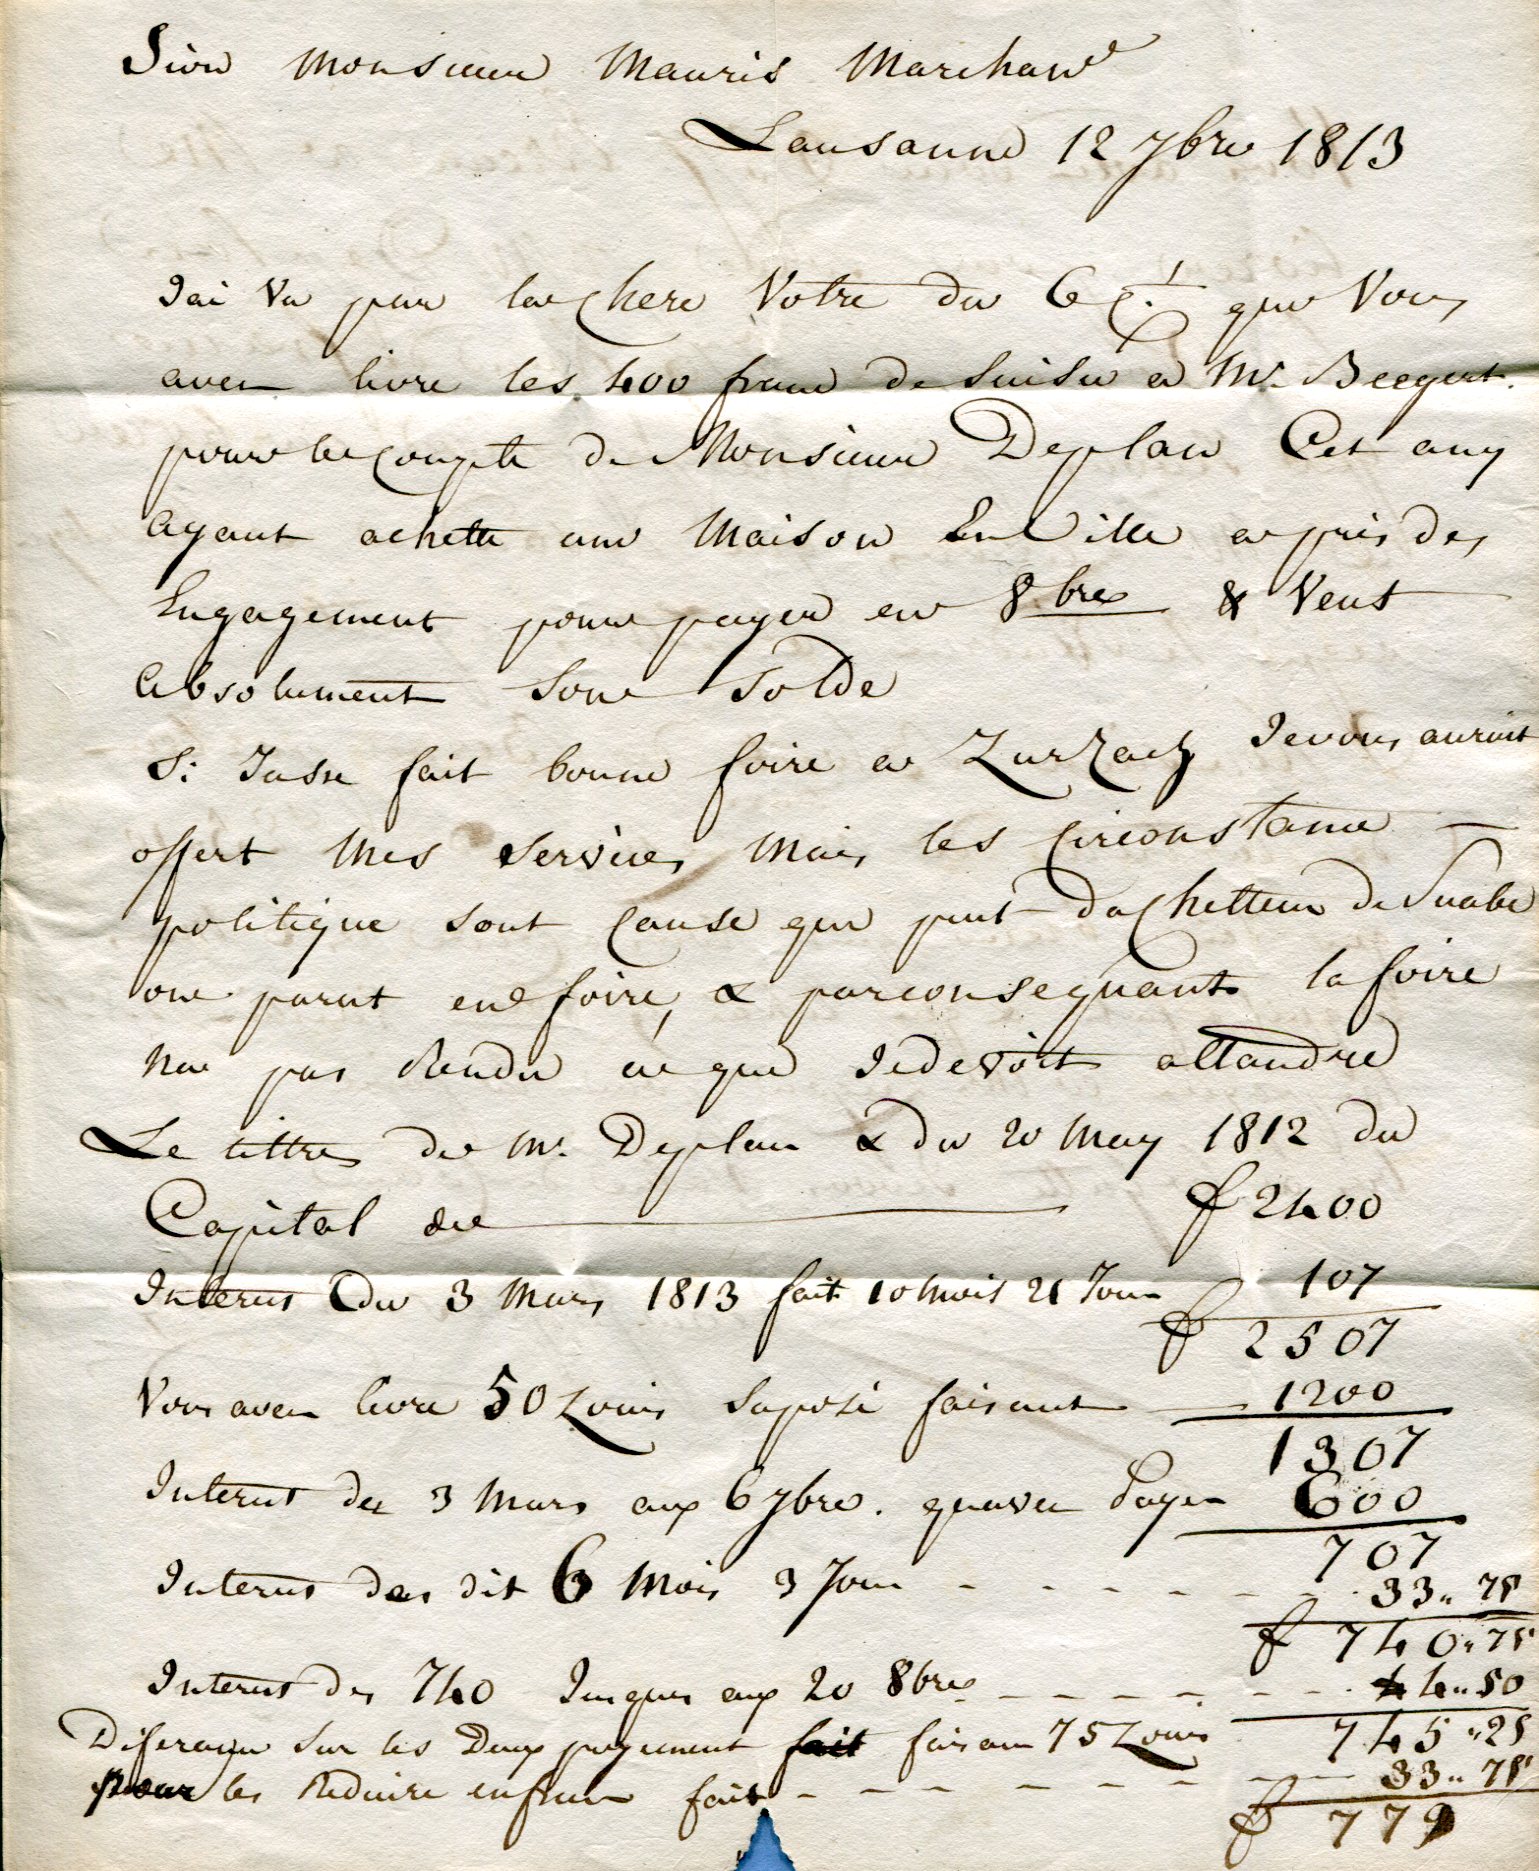 Sion Monsieur Mauris Marchand
Lausanne 12 7bre 1813
Jai Vu par la Chere Votre du 6 Ct que Vous
aven livre les 400 franc de Suisse a Mr. Beeguert.
pour le Compte de Monsieur Deplan Cet amy
Ayant achette une Maison En Ville a pris des
Engagement pour payer en 8bre & Veut
Absolument Son Solde
Si Jusse fait bonne foire a Zurzach Je vous auroit
offert Mes Services Mais les Circonstance
politique sont Cause que peut dachetteur de Suabe
on parut en foire, & parconsequant la foire
Na pas Rendu ce que Je devoit attandre
Le tittre de Mr. Deplan & du 20 May 1812 du
Capital de f 2400
Interest du 3 Mars 1813 fait 10 Mois 21 Jour 107
f 2507
Vous aven livre 50 Louis Suposé faisant 1200
1307
Interest des 3 Mars aux 6 7bre. quaven Payer 600
707
Interest des dit 6 Mois 3 Jour - - - - - 33 " 75
f 740 " 75
Interest des 740 Jusques aux 20 8bre - - - - - 4 " 50
745 " 25
Diferance Sur les Deux payement fait faisan 75 Louis
pour les Reduire en franc fait - - - - - 33 " 75
f 779